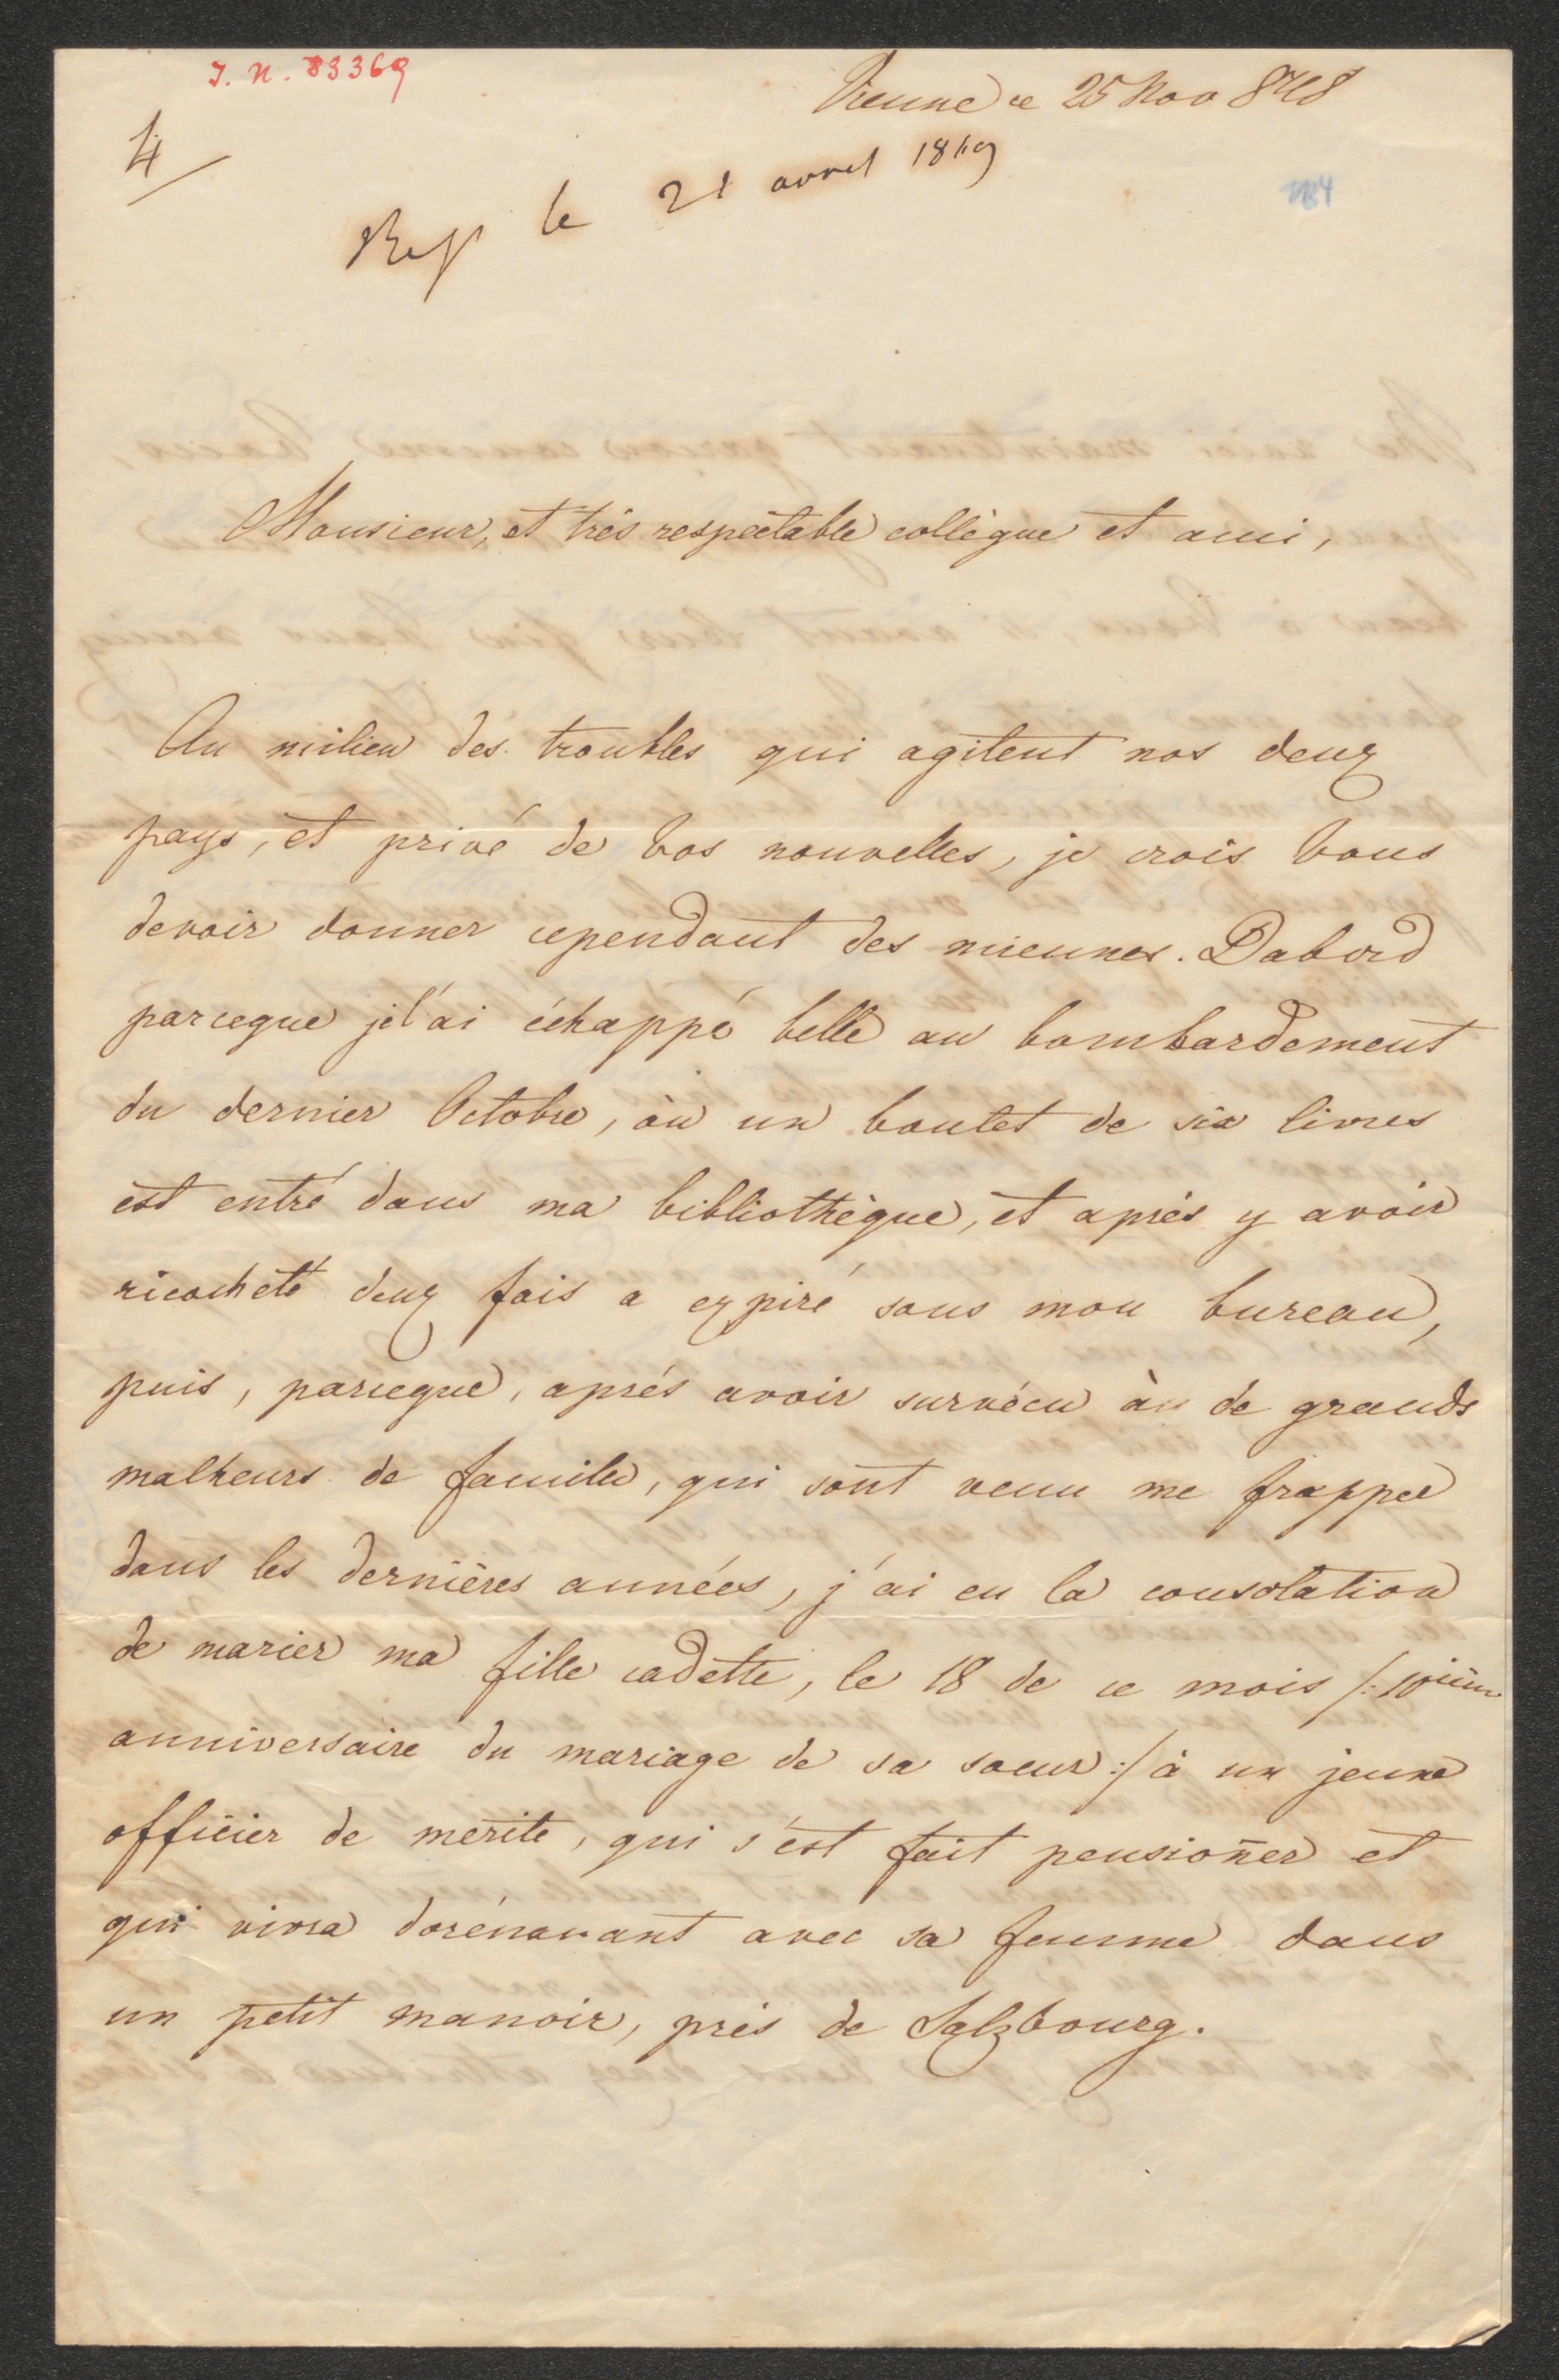 J. N. 83369
Vienne ce 25 Nov 848
4
Rep le 21 avril 1849
184
Monsieur, et très respectable collègue et ami,
Au milieu des troubles qui agitent nos deux
pays, et privé de Vos nouvelles, je crois Vous
devoir donner cependant des miennes. Dabord
parceque jel'ai échappé belle au bombardement
du dernier Octobre, où un boulet de six livres
est entré dans ma bibliothèque, et après y avoir
ricocheté deux fois a expiré sous mon bureau,
puis, parceque, après avoir survécu à de grands
malheurs de famille, qui sont venu me frapper
dans les dernières années, j'ai eu la consolation
de marier ma fille cadette, le 18 de ce mois /: 10ièm
anniversaire du mariage de sa soeur :/ à un jeune
officier de mérite, qui s'est fait pensioner et
qui vivra dorénavant avec sa femme dans
un petit manoir, près de Salzbourg.